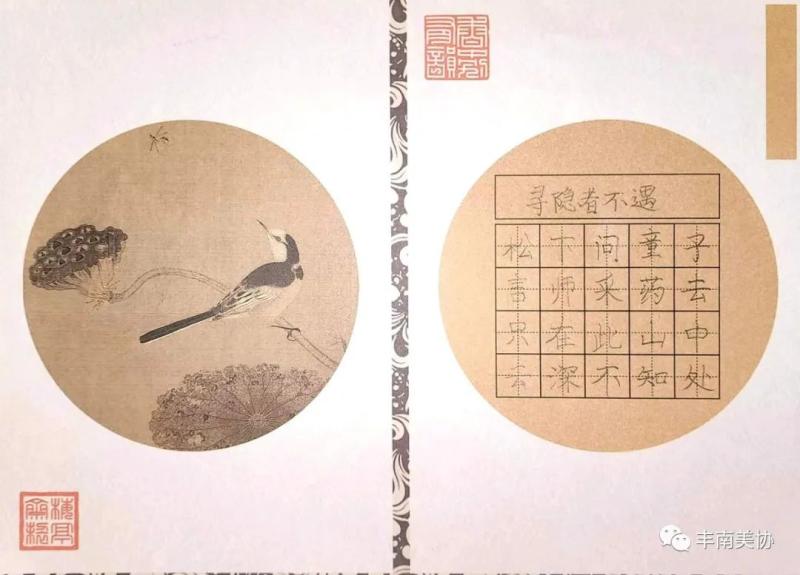 寻隐者不遇
松下问童子
言师采药去
只在此山中
云深不知处
丰南美协